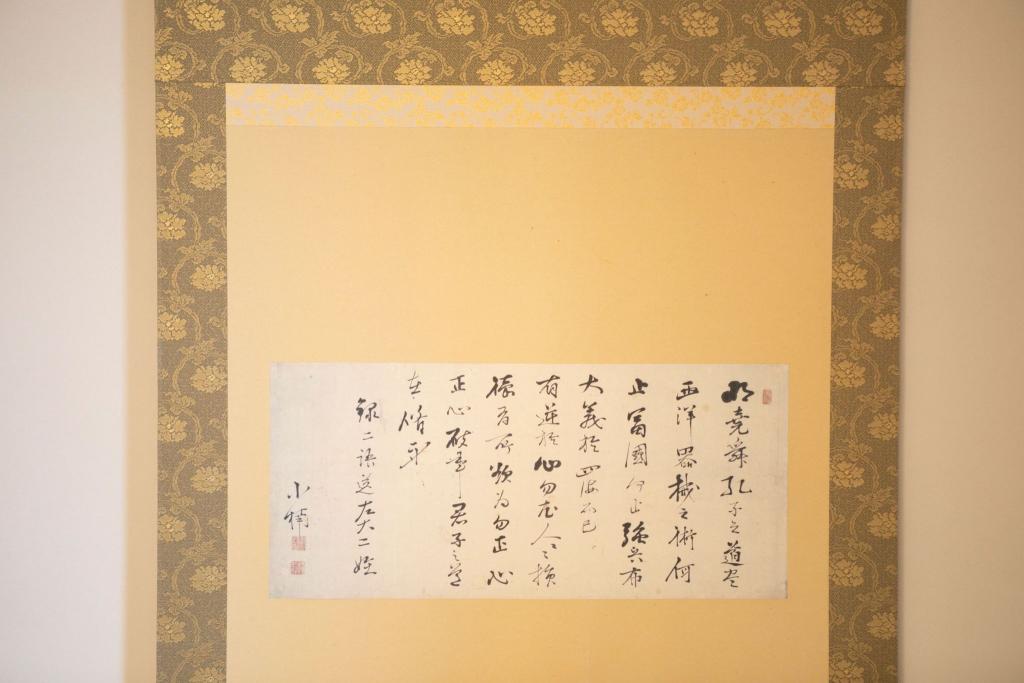 明堯舜孔子之道尽
西洋器械之術何
止富國何止強兵布
大義於四海而已
有逆於心勿尤人尤人損
徳有所欲為勿正心
正心破事君子之道
在脩身
録二語送左大二姪
小楠